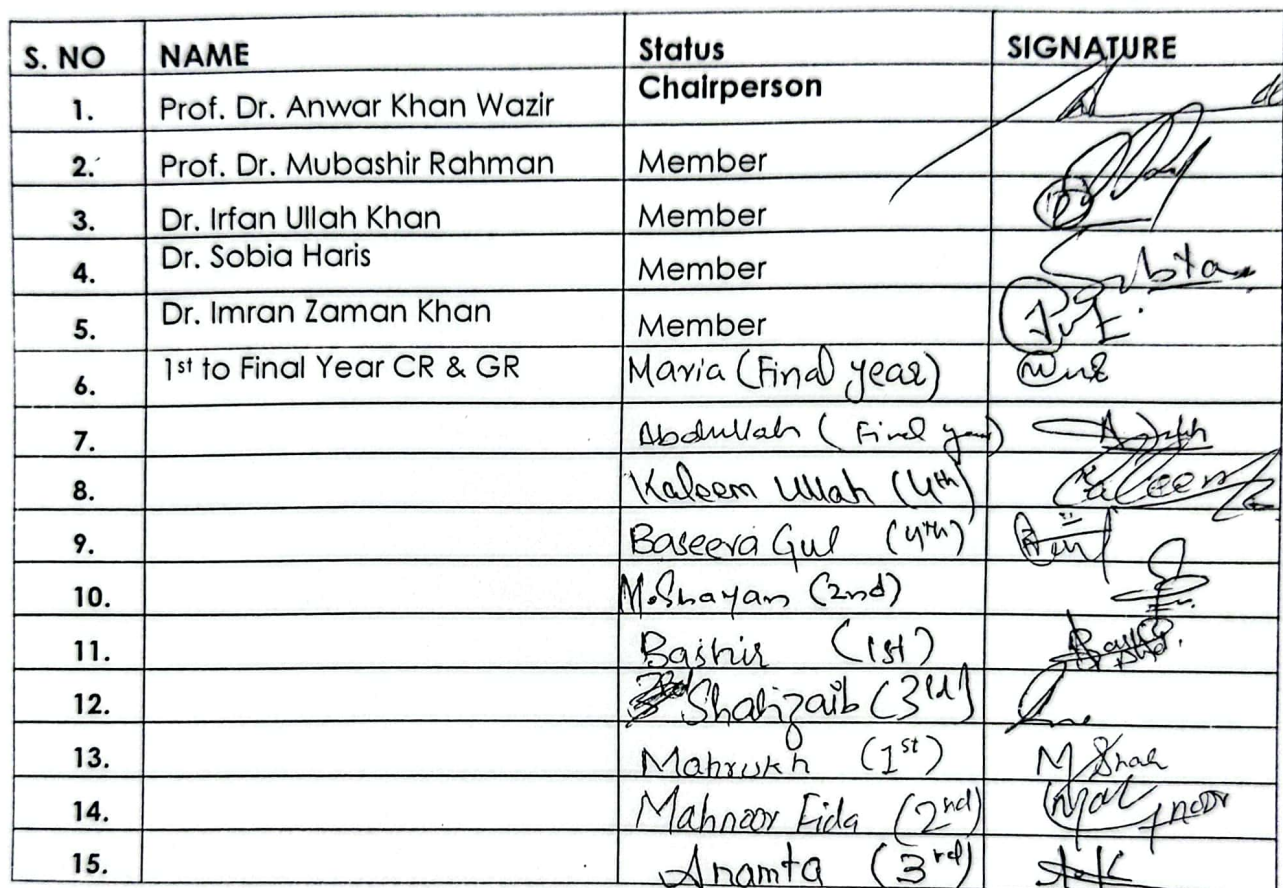 S. NO NAME Status SIGNATURE
1. Prof. Dr. Anwar Khan Wazir Chairperson
2. Prof. Dr. Mubashir Rahman Member
3. Dr. Irfan Ullah Khan Member
4. Dr. Sobia Haris Member
5. Dr. Imran Zaman Khan Member
6. 1st to Final Year CR & GR Maria (Final year)
7. Abdullah (Final year)
8. Kaleem Ullah (4th) Kaleem
9. Baseera Gul (4th)
10. M. Shayan (2nd)
11. Bashir (1st)
12. Shahzaib (3rd)
13. Mahrukh (1st) M Shah
14. Mahnoor Fida (2nd)
15. Anamta (3rd)